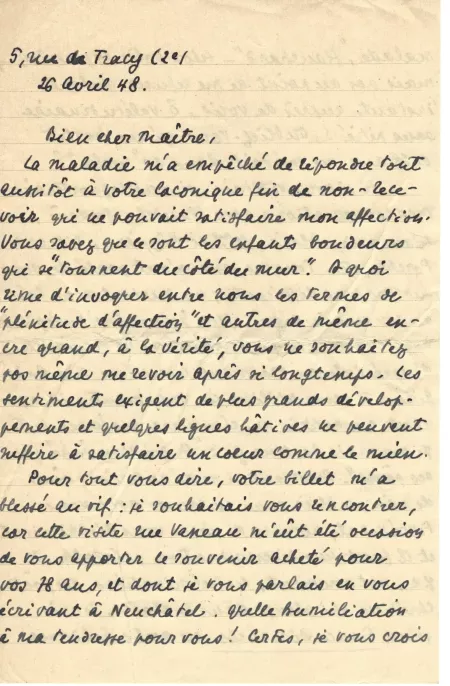 5, rue de Tracy (2e)
26 avril 48.
Bien cher maître,
La maladie m'a empêché de répondre tout
aussitôt à votre laconique fin de non-rece-
voir qui ne pouvait satisfaire mon affection.
Vous savez que ce sont les enfants boudeurs
qui se "tournent du côté du mur". A quoi
rime d'invoquer entre nous les termes de
"plénitude d'affection" et autres de même en-
cre quand, à la vérité, vous ne souhaitez
pas même me revoir après si longtemps. Les
sentiments exigent de plus grands dévelop-
pements et quelques lignes hâtives ne peuvent
suffire à satisfaire un coeur comme le mien.
Pour tout vous dire, votre billet m'a
blessé au vif : je souhaitais vous rencontrer,
car cette visite rue Vaneau m'eût été occasion
de vous apporter le souvenir acheté pour
vos 78 ans, et dont je vous parlais en vous
écrivant à Neuchâtel. Quelle humiliation
à ma tendresse pour vous ! Certes, je vous crois